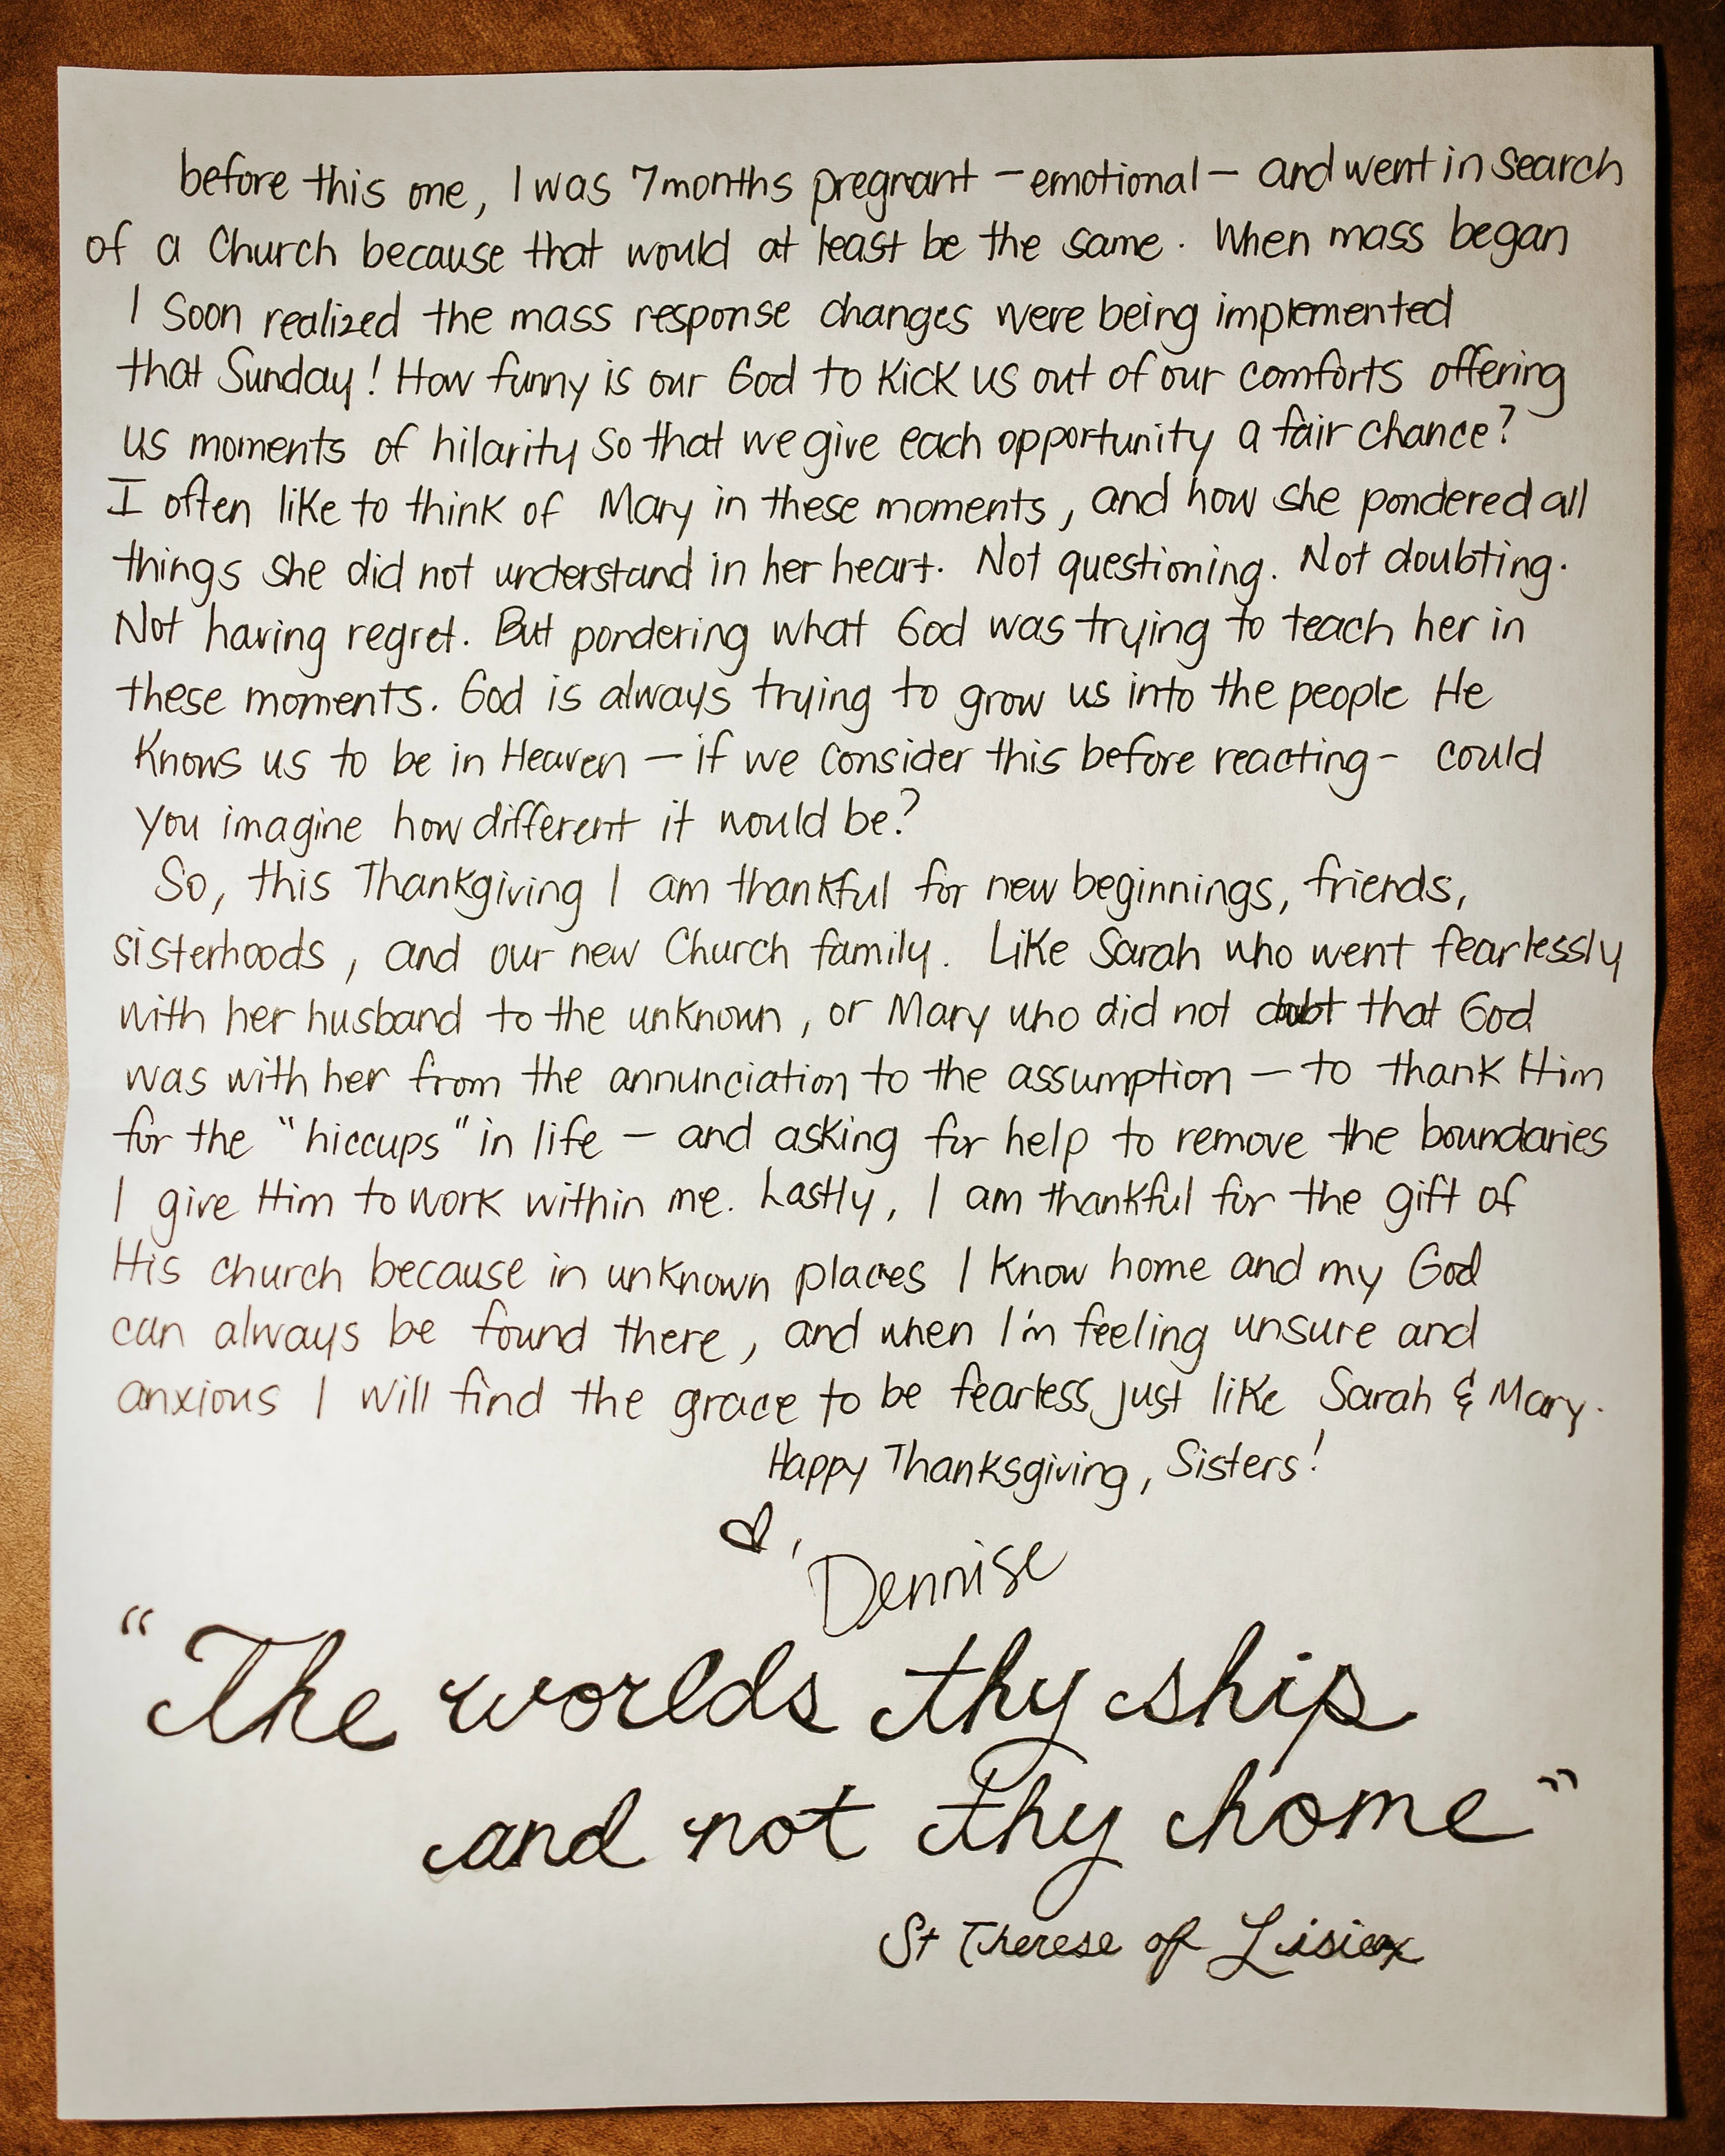 before this one, I was 7months pregnant — emotional — and went in search
of a Church because that would at least be the same. When mass began
I soon realized the mass response changes were being implemented
that Sunday! How funny is our God to kick us out of our comforts offering
us moments of hilarity so that we give each opportunity a fair chance?
I often like to think of Mary in these moments, and how she pondered all
things she did not understand in her heart. Not questioning. Not doubting.
Not having regret. But pondering what God was trying to teach her in
these moments. God is always trying to grow us into the people He
knows us to be in Heaven — if we consider this before reacting - could
you imagine how different it would be?
So, this Thankgiving I am thankful for new beginnings, friends,
sisterhoods, and our new Church family. Like Sarah who went fearlessly
with her husband to the unknown, or Mary who did not doubt that God
was with her from the annunciation to the assumption — to thank Him
for the "hiccups" in life — and asking for help to remove the boundaries
I give Him to work within me. Lastly, I am thankful for the gift of
His church because in unknown places I know home and my God
can always be found there, and when I'm feeling unsure and
anxious I will find the grace to be fearless just like Sarah & Mary.
Happy Thanksgiving, Sisters!
♡, Dennise
"The worlds thy ship
and not thy home"
St Therese of Lisieux